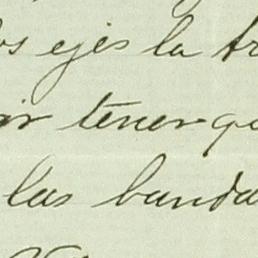 os ejes la tr
ir tener qu
las banda